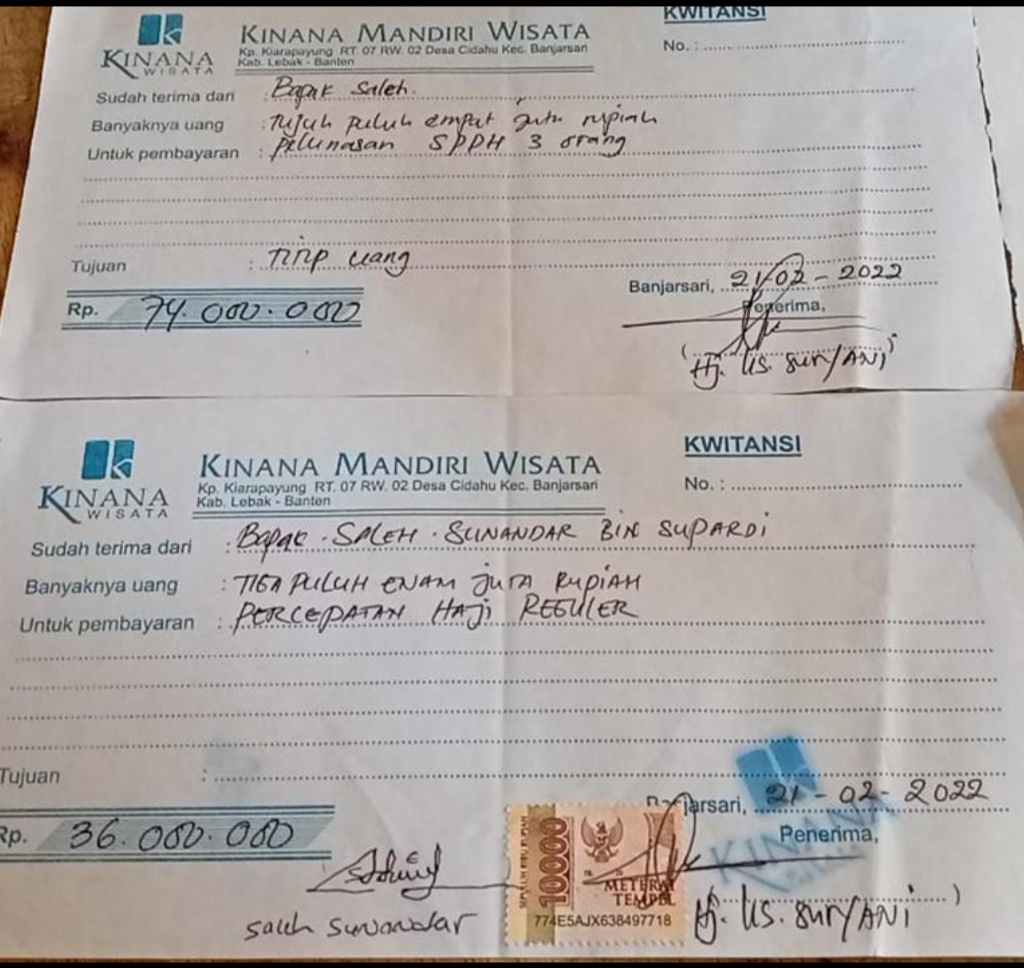 KINANA WISATA
KINANA MANDIRI WISATA
Kp. Kiarapayung RT. 07 RW. 02 Desa Cidahu Kec. Banjarsari
Kab. Lebak - Banten
KWITANSI
No. :
Sudah terima dari : Bapak Saleh.
Banyaknya uang : Tujuh puluh empat juta rupiah
Untuk pembayaran : pelunasan SPPH 3 orang
Tujuan : Titip uang
Rp. 74.000.000
Banjarsari, 21/02 - 2022
Penerima,
(Hj. IIS. SURYANI)
KINANA WISATA
KINANA MANDIRI WISATA
Kp. Kiarapayung RT. 07 RW. 02 Desa Cidahu Kec. Banjarsari
Kab. Lebak - Banten
KWITANSI
No. :
Sudah terima dari : Bapak . SALEH . SUNANDAR BIN SUPARDI
Banyaknya uang : TIGA PULUH ENAM JUTA RUPIAH
Untuk pembayaran : PERCEPATAN HAJI REGULER
Tujuan :
Rp. 36.000.000
Banjarsari, 21 - 02 - 2022
Penerima,
KINANA
10000
METERAI
TEMPEL
774E5AJX638497718
Saleh Sunandar
Hj. IIS. SURYANI )